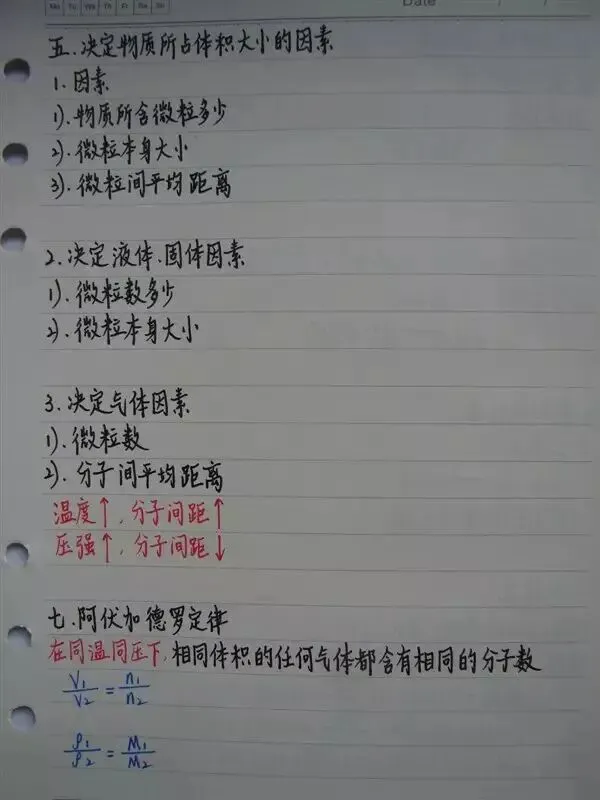 Mo Tu We Th Fr Sa Su
Date / /
五.决定物质所占体积大小的因素
1.因素
1).物质所含微粒多少
2).微粒本身大小
3).微粒间平均距离
2.决定液体.固体因素
1).微粒数多少
2).微粒本身大小
3.决定气体因素
1).微粒数
2).分子间平均距离
温度↑,分子间距↑
压强↑,分子间距↓
七.阿伏加德罗定律
在同温同压下,相同体积的任何气体都含有相同的分子数
V₁/V₂ = n₁/n₂
ρ₁/ρ₂ = M₁/M₂